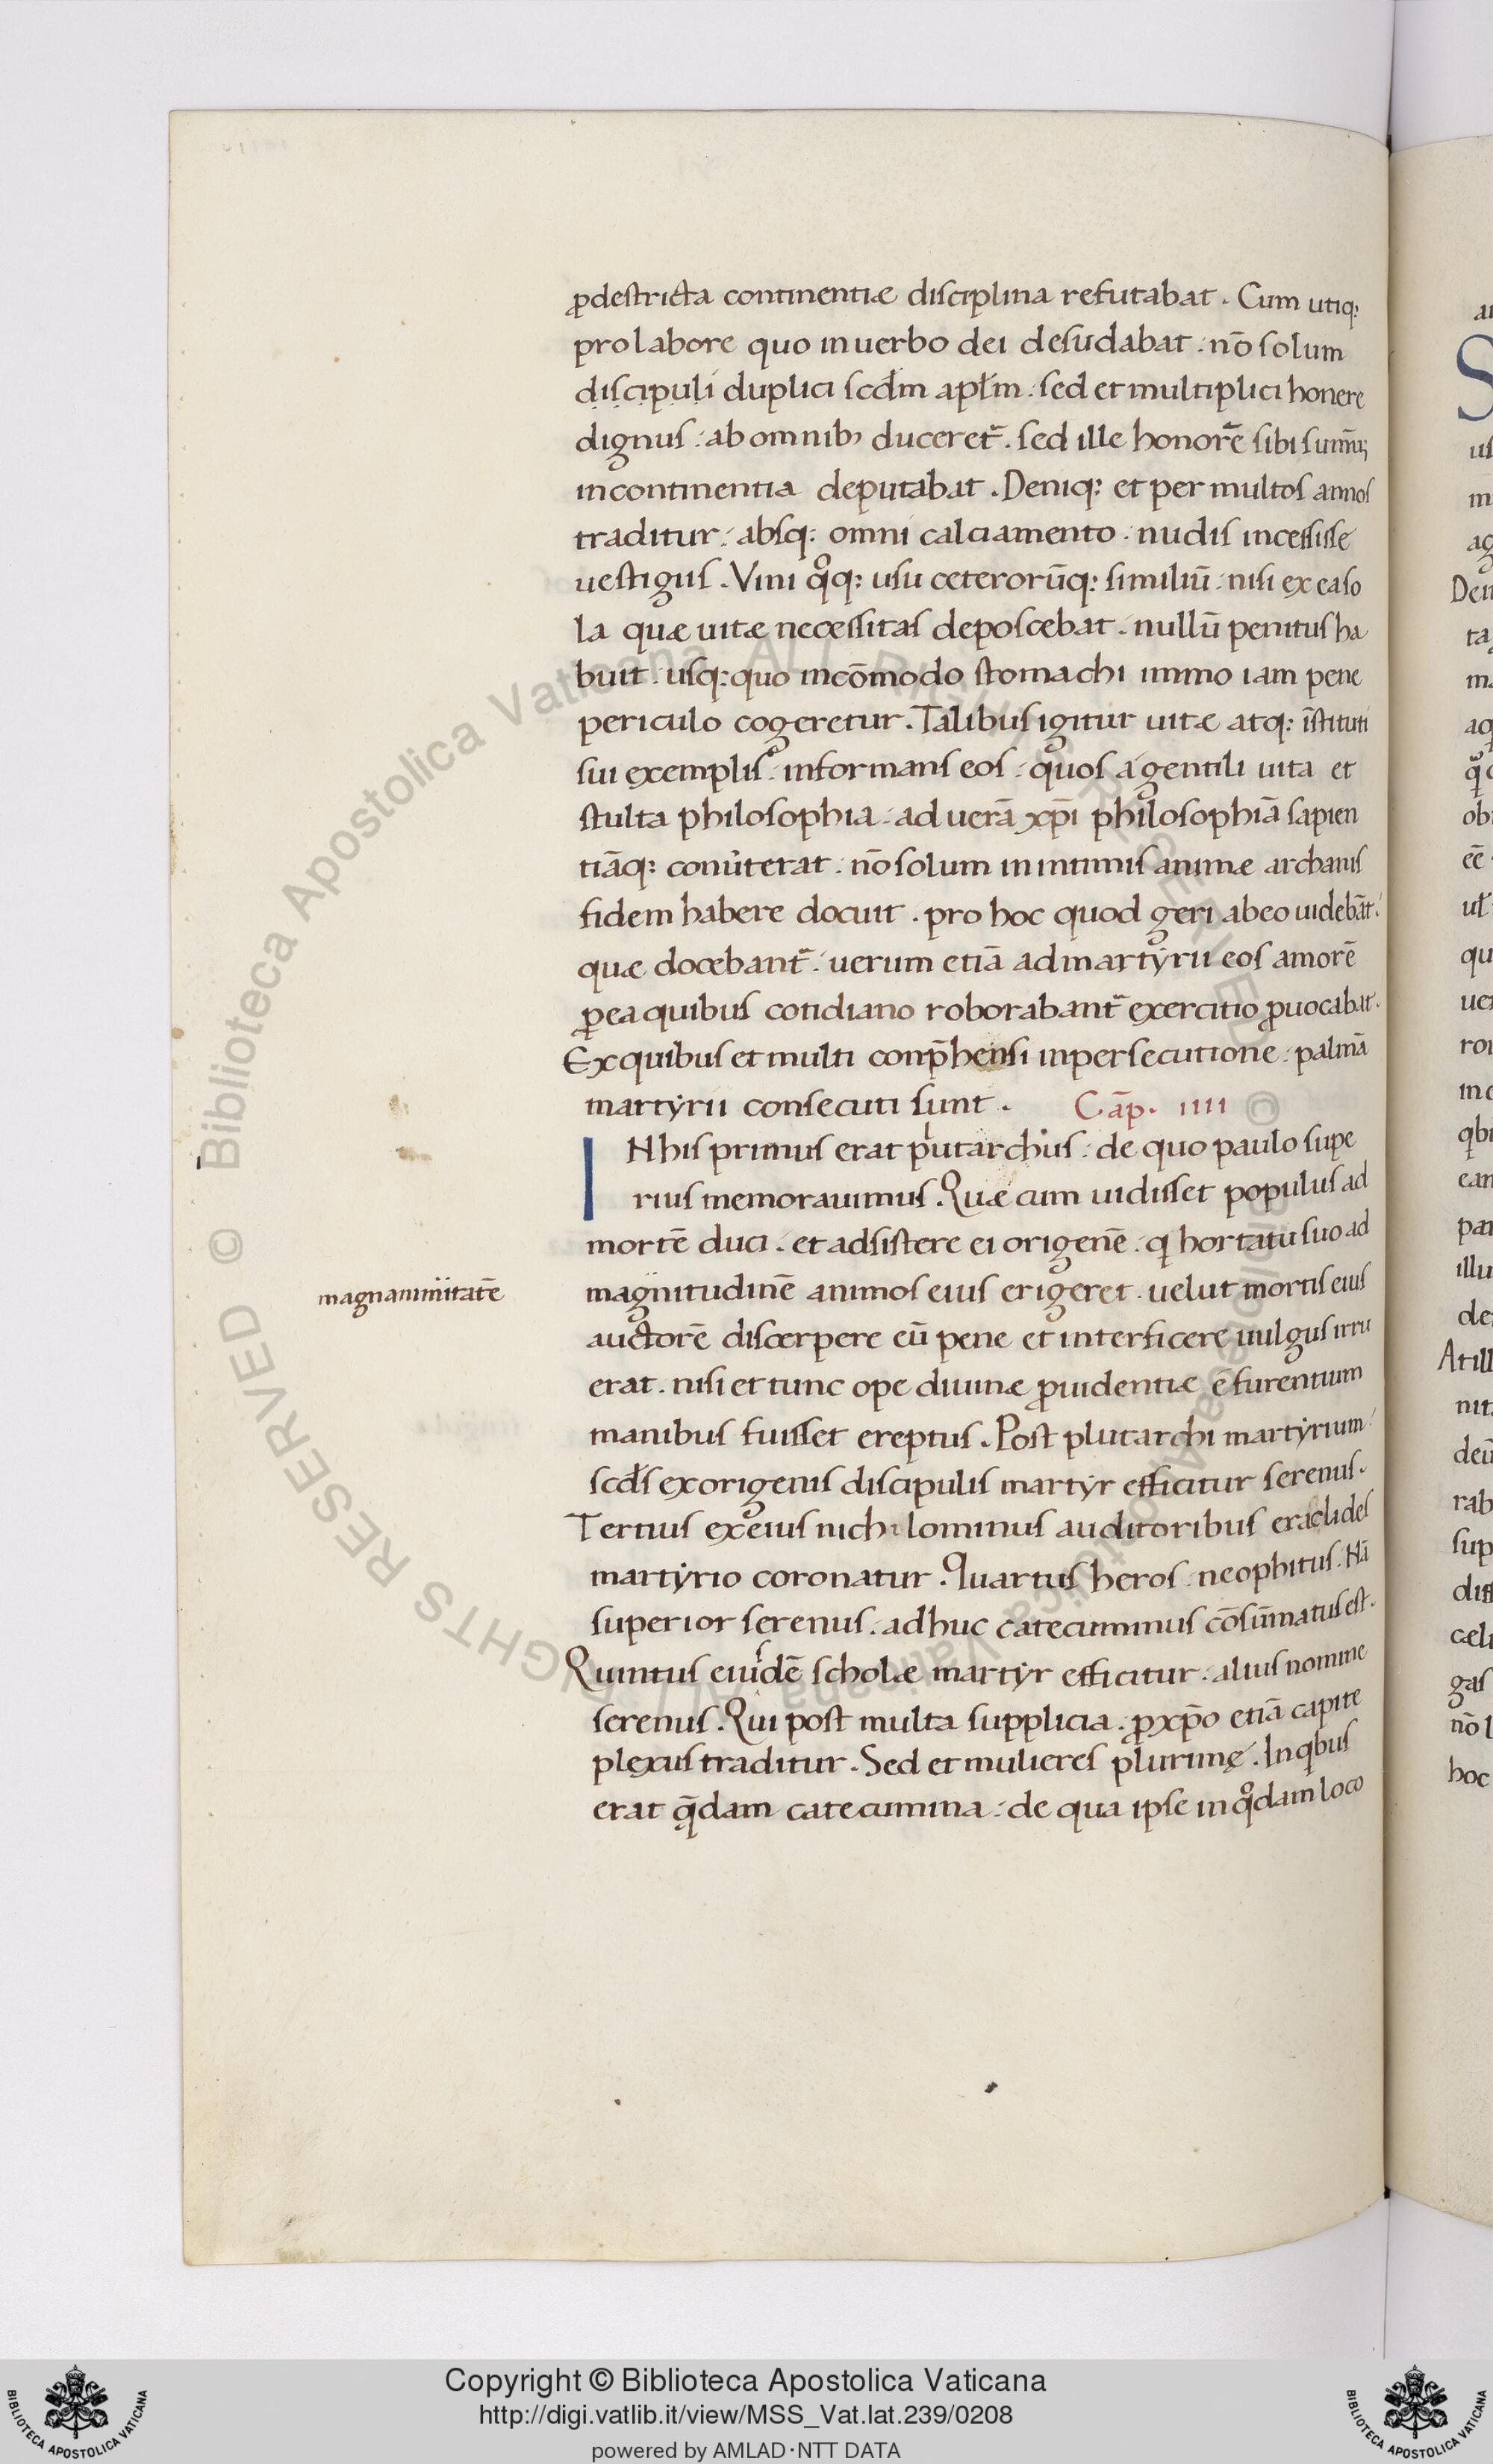 ꝓdestricta continentiæ disciplina refutabat. Cum utiq:
pro labore quo in uerbo dei desudabat. nō solum
discipuli duplici scd̄m apl̄m. sed et multiplici honere
dignus. ab omnib; duceret᷑. sed ille honorē sibi summū
in continentia deputabat. Deniq: et per multos annos
traditur. absq: omni calciamento. nudis incessisse
uestigiis. Vini qͦq: usu ceterorūq: similiū. nisi ex ea so
la quæ uitæ necessitas deposcebat. nullū penitus ha
buit. usq: quo incōmodo stomachi immo iam pene
periculo cogeretur. Talibus igitur uitæ atq: īstituti
sui exemplis. informans eos. quos a gentili uita et
stulta philosophia. ad uerā xp̄i philosophiā sapien
tiāq: conuerterat. nō solum in intimis animæ archanis
fidem habere docuit. pro hoc quod geri ab eo uidebāt.
quæ docebant᷑. uerum etiā ad martyrii eos amorē
ꝑ ea quibus cotidiano roborabant᷑ exercitio ꝓuocabat.
Ex quibus et multi conp̄hensi in persecutione. palmā
martyrii consecuti sunt. Cāp. IIII
IN his primus erat plutarchus. de quo paulo supe
rius memorauimus. Quæ cum uidisset populus ad
mortē duci. et adsistere ei origenē. q hortatu suo ad
magnanimitatē
magnitudinē animos eius erigeret. uelut mortis eius
auctorē discerpere eū pene et interficere uulgus irru
erat. nisi et tunc ope diuinæ ꝓuidentiæ ē furentium
manibus fuisset ereptus. Post plutarchi martyrium.
scd̄s ex origenis discipulis martyr efficitur serenus.
Tertius ex eius nichilominus auditoribus eraclides
martyrio coronatur. Quartus heros. neophitus. Nā
superior serenus. adhuc catecuminus cōsūmatus est.
Quintus eiusdē scholæ martyr efficitur. alius nomine
serenus. Qui post multa supplicia. ꝓ xp̄o etiā capite
plexus traditur. Sed et mulieres plurimę. In qbus
erat q̄dam catecumina. de qua ipse in qͦdam loco
Copyright © Biblioteca Apostolica Vaticana
http://digi.vatlib.it/view/MSS_Vat.lat.239/0208
powered by AMLAD·NTT DATA